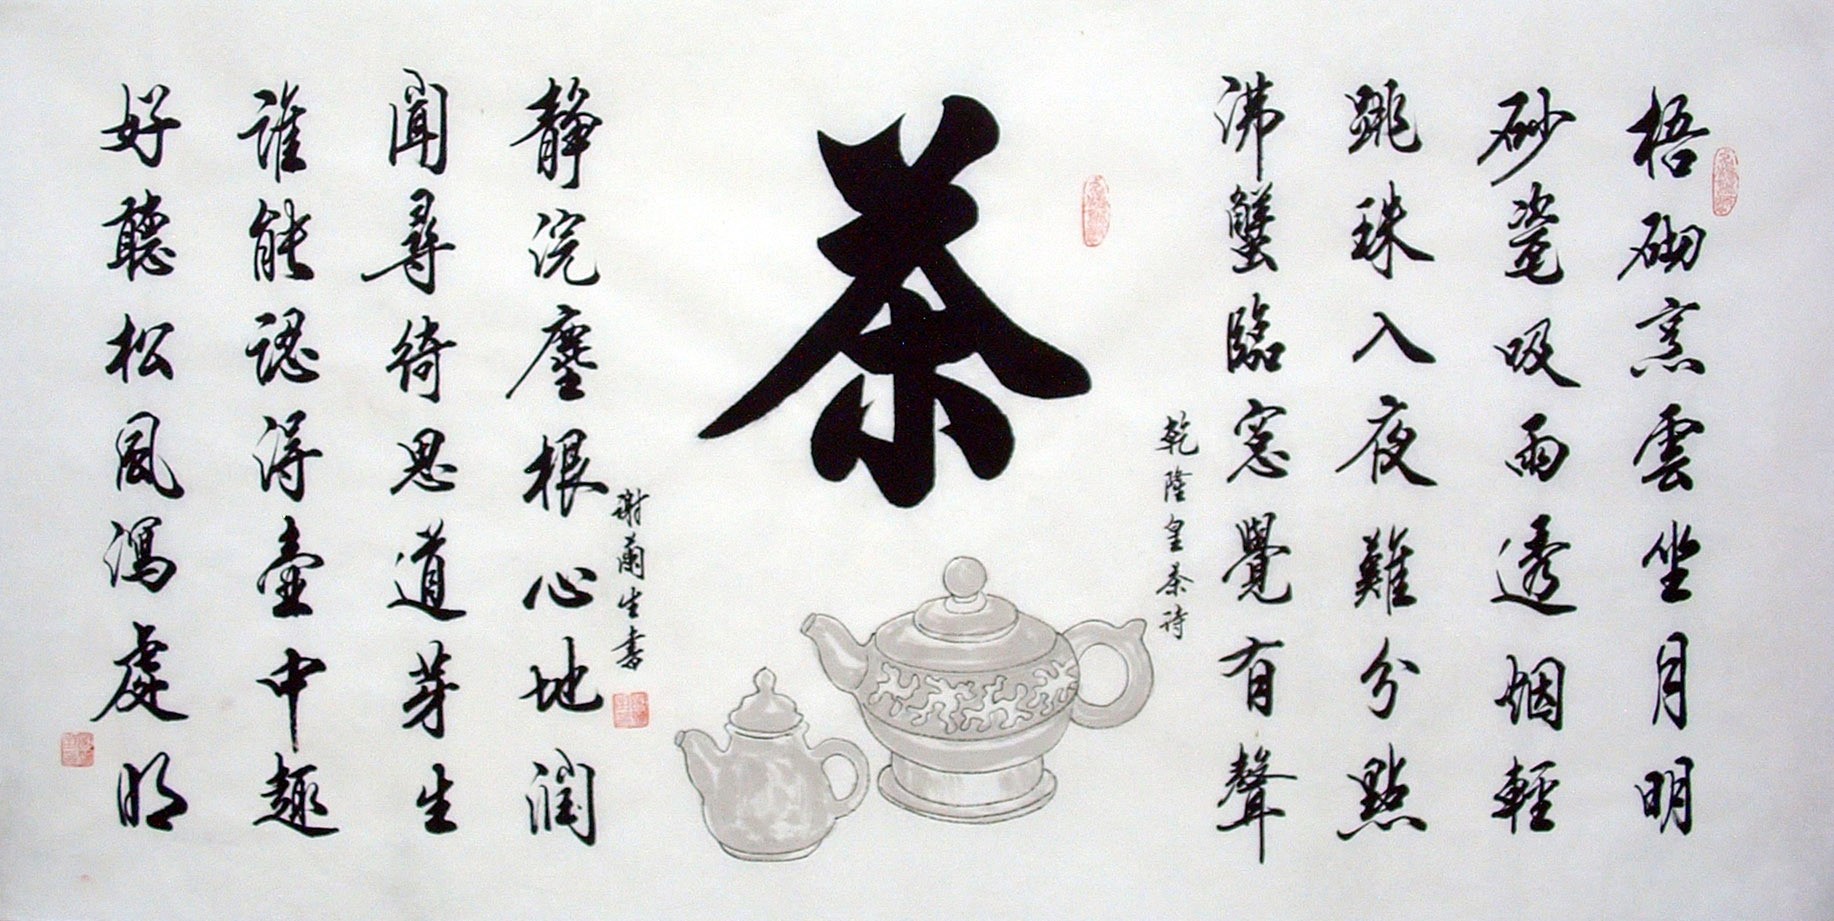 梧砌烹雲坐月明
砂瓷吸雨透烟輕
跳珠入夜難分點
沸蟹臨窓覺有聲
乾隆皇茶詩
茶
謝蘭生書
靜浣塵根心地潤
聞尋綺思道芽生
誰能認得壺中趣
好聽松風瀉處明